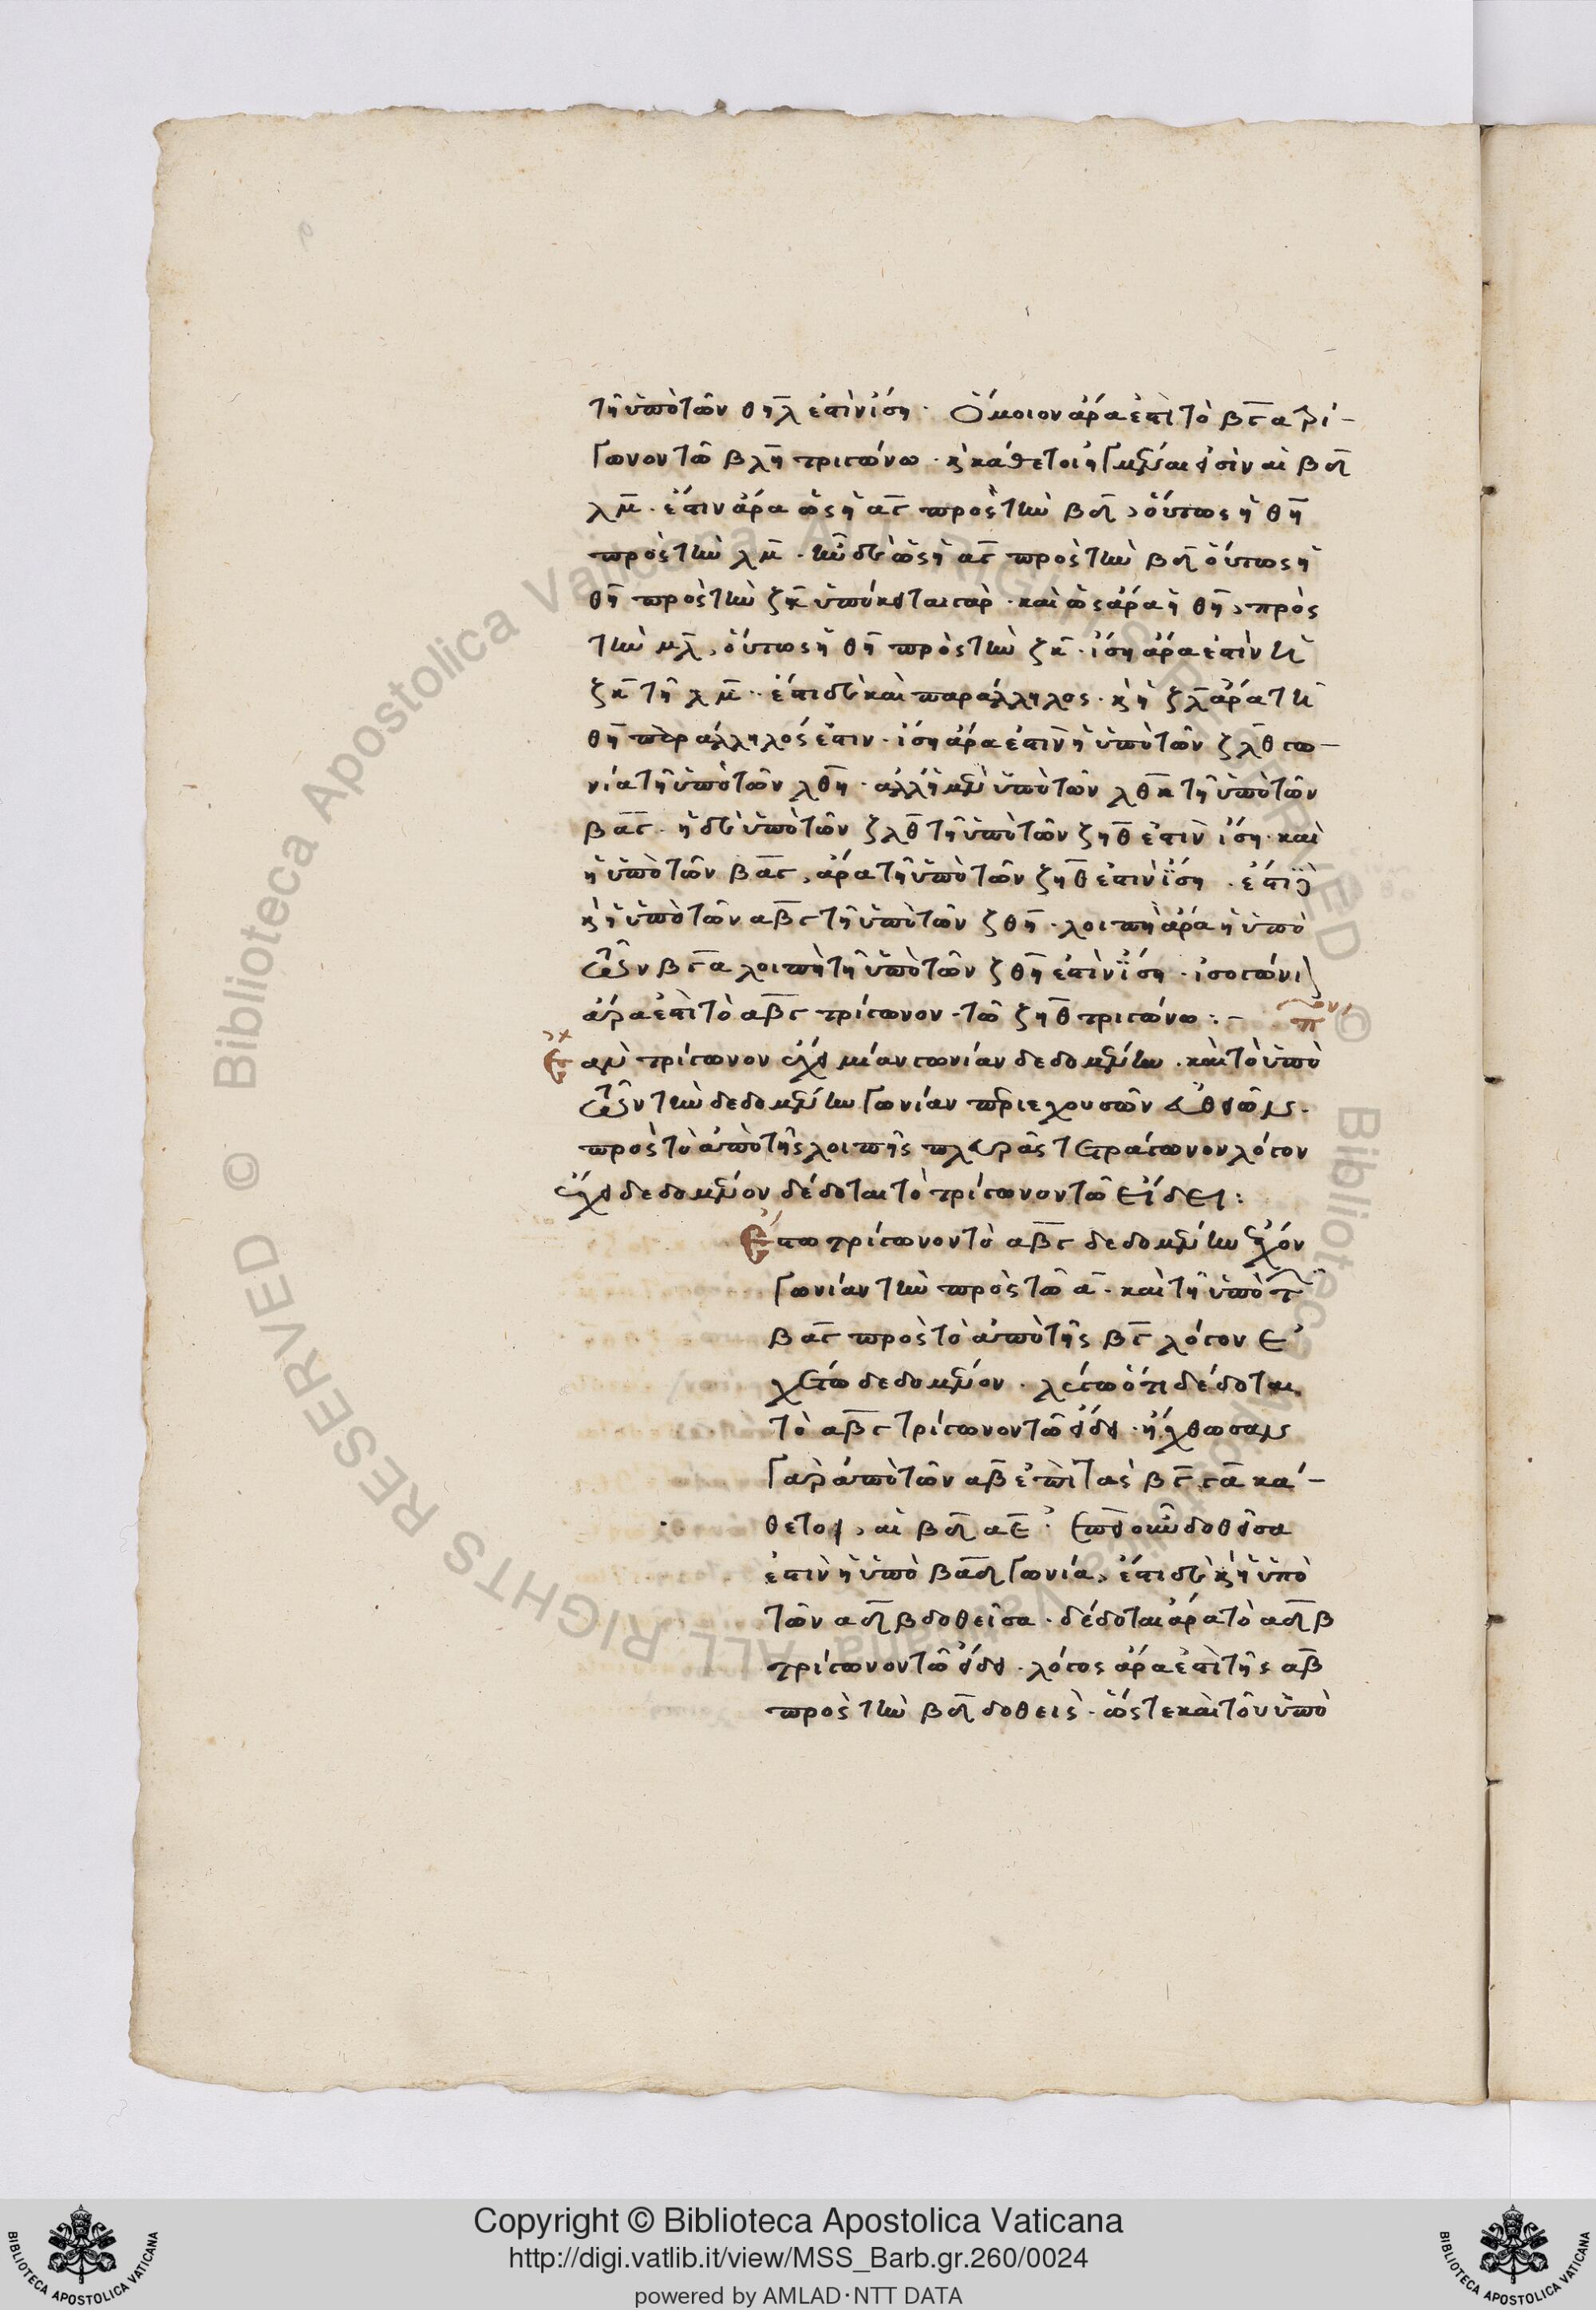 τῆ ὑπὸ τῶν θηλ ἐστὶν ἴση. Ὅμοιον ἄρα ἐστὶ τὸ βγα τρί-
γωνον τῶ βλη τριγώνω. κ κάθετοι ἠγμέναι εἰσὶν αἱ βδ
λμ. ἔστιν ἄρα ὡς ἡ αγ πρὸς τὴν βδ, οὕτως ἡ θη
πρὸς τὴν λμ. ἦν δὲ ὡς ἡ αγ πρὸς τὴν βδ οὕτως ἡ
θη πρὸς τὴν ζκ ὑπόκειται γάρ. καὶ ὡς ἄρα ἡ θη, πρὸς
τὴν μλ, οὕτως ἡ θη πρὸς τὴν ζκ. ἴση ἄρα ἐστὶν ἡ
ζκ τῆ λμ. ἔστι δὲ καὶ παράλληλος. κ ἡ ζλ ἄρα τῆ
θη παράλληλός ἐστιν. ἴση ἄρα ἐστὶν ἡ ὑπὸ τῶν ζλθ γω-
νία τῆ ὑπὸ τῶν λθη. ἀλλ' ἡ μὲν ὑπὸ τῶν λθκ τῆ ὑπὸ τῶν
βαγ. ἡ δὲ ὑπὸ τῶν ζλθ τῆ ὑπὸ τῶν ζηθ ἐστὶν ἴση. καὶ
ἡ ὑπὸ τῶν βαγ, ἄρα τῆ ὑπὸ τῶν ζηθ ἐστὶν ἴση. ἔστι δὲ
κ ἡ ὑπὸ τῶν αβγ τῆ ὑπὸ τῶν ζθη. λοιπὴ ἄρα ἡ ὑπὸ
τῶν βγα λοιπῆ τῆ ὑπὸ τῶν ζθη ἐστὶν ἴση. ἰσογώνι
ἄρα ἐστὶ τὸ αβγ τρίγωνον τῶ ζηθ τριγώνω:-
Ἐὰν τρίγωνον ἔχει μίαν γωνίαν δεδομένην. καὶ τὸ ὑπὸ
τῶν τὴν δεδομένην γωνίαν περιεχουσῶν εὐθειῶν.
πρὸς τὸ ἀπὸ τῆς λοιπῆς πλευρᾶς τετράγωνον λόγον
ἔχει δεδομένον δέδοται τὸ τρίγωνον τῶ εἴδει:
Ἔστω τρίγωνον τὸ αβγ δεδομένην ἔχον
γωνίαν τὴν πρὸς τῶ α. καὶ τῆ ὑπὸ τ
βαγ πρὸς τὸ ἀπὸ τῆς βγ λόγον ἐ
χέτω δεδομένον. λέγω ὅτι δέδοται
τὸ αβγ τρίγωνον τῶ εἴδει. ἤχθωσαν
γὰρ ἀπὸ τῶν αβ ἐπὶ τὰς βγ γα κά-
θετοι, αἱ βδ αε. ἐπεὶ οὖν δοθεῖσα
ἐστὶν ἡ ὑπὸ βαδ γωνία, ἔστι δὲ κ ἡ ὑπὸ
τῶν αδβ δοθεῖσα. δέδοται ἄρα τὸ αδβ
τρίγωνον τῶ εἴδει. λόγος ἄρα ἐστὶ τῆς αβ
πρὸς τὴν βδ δοθεὶς. ὥστε καὶ τοῦ ὑπὸ
Copyright © Biblioteca Apostolica Vaticana
http://digi.vatlib.it/view/MSS_Barb.gr.260/0024
powered by AMLAD·NTT DATA